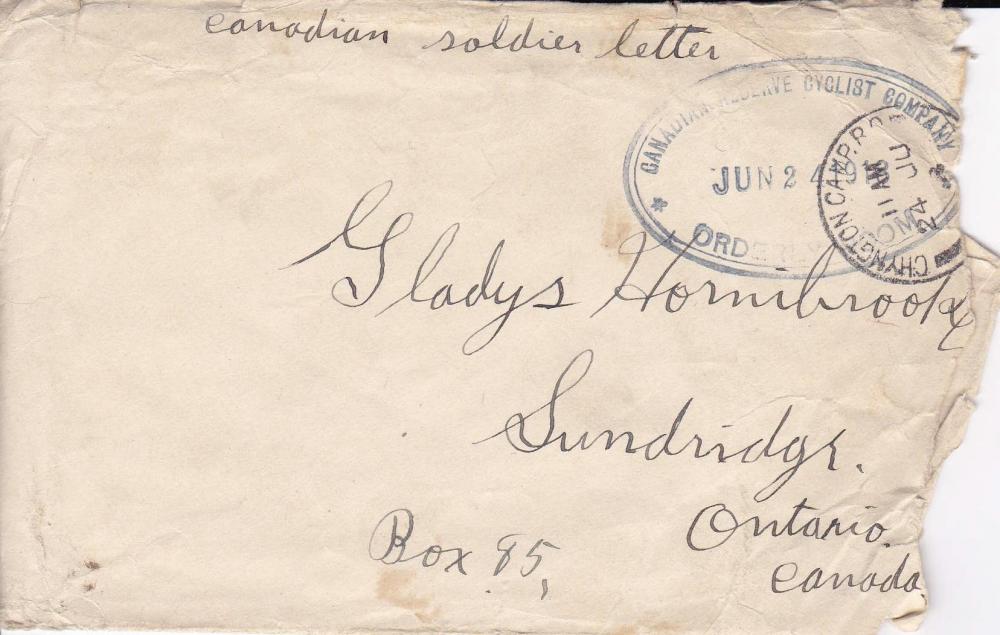 canadian soldier letter
CANADIAN RESERVE CYCLIST COMPANY
JUN 24 1918
ORDERLY ROOM
CHYNGTON CAMP.
11 AM
24 JU
Gladys Hornibrook
Sundridge.
Ontario.
Box 85,
Canada